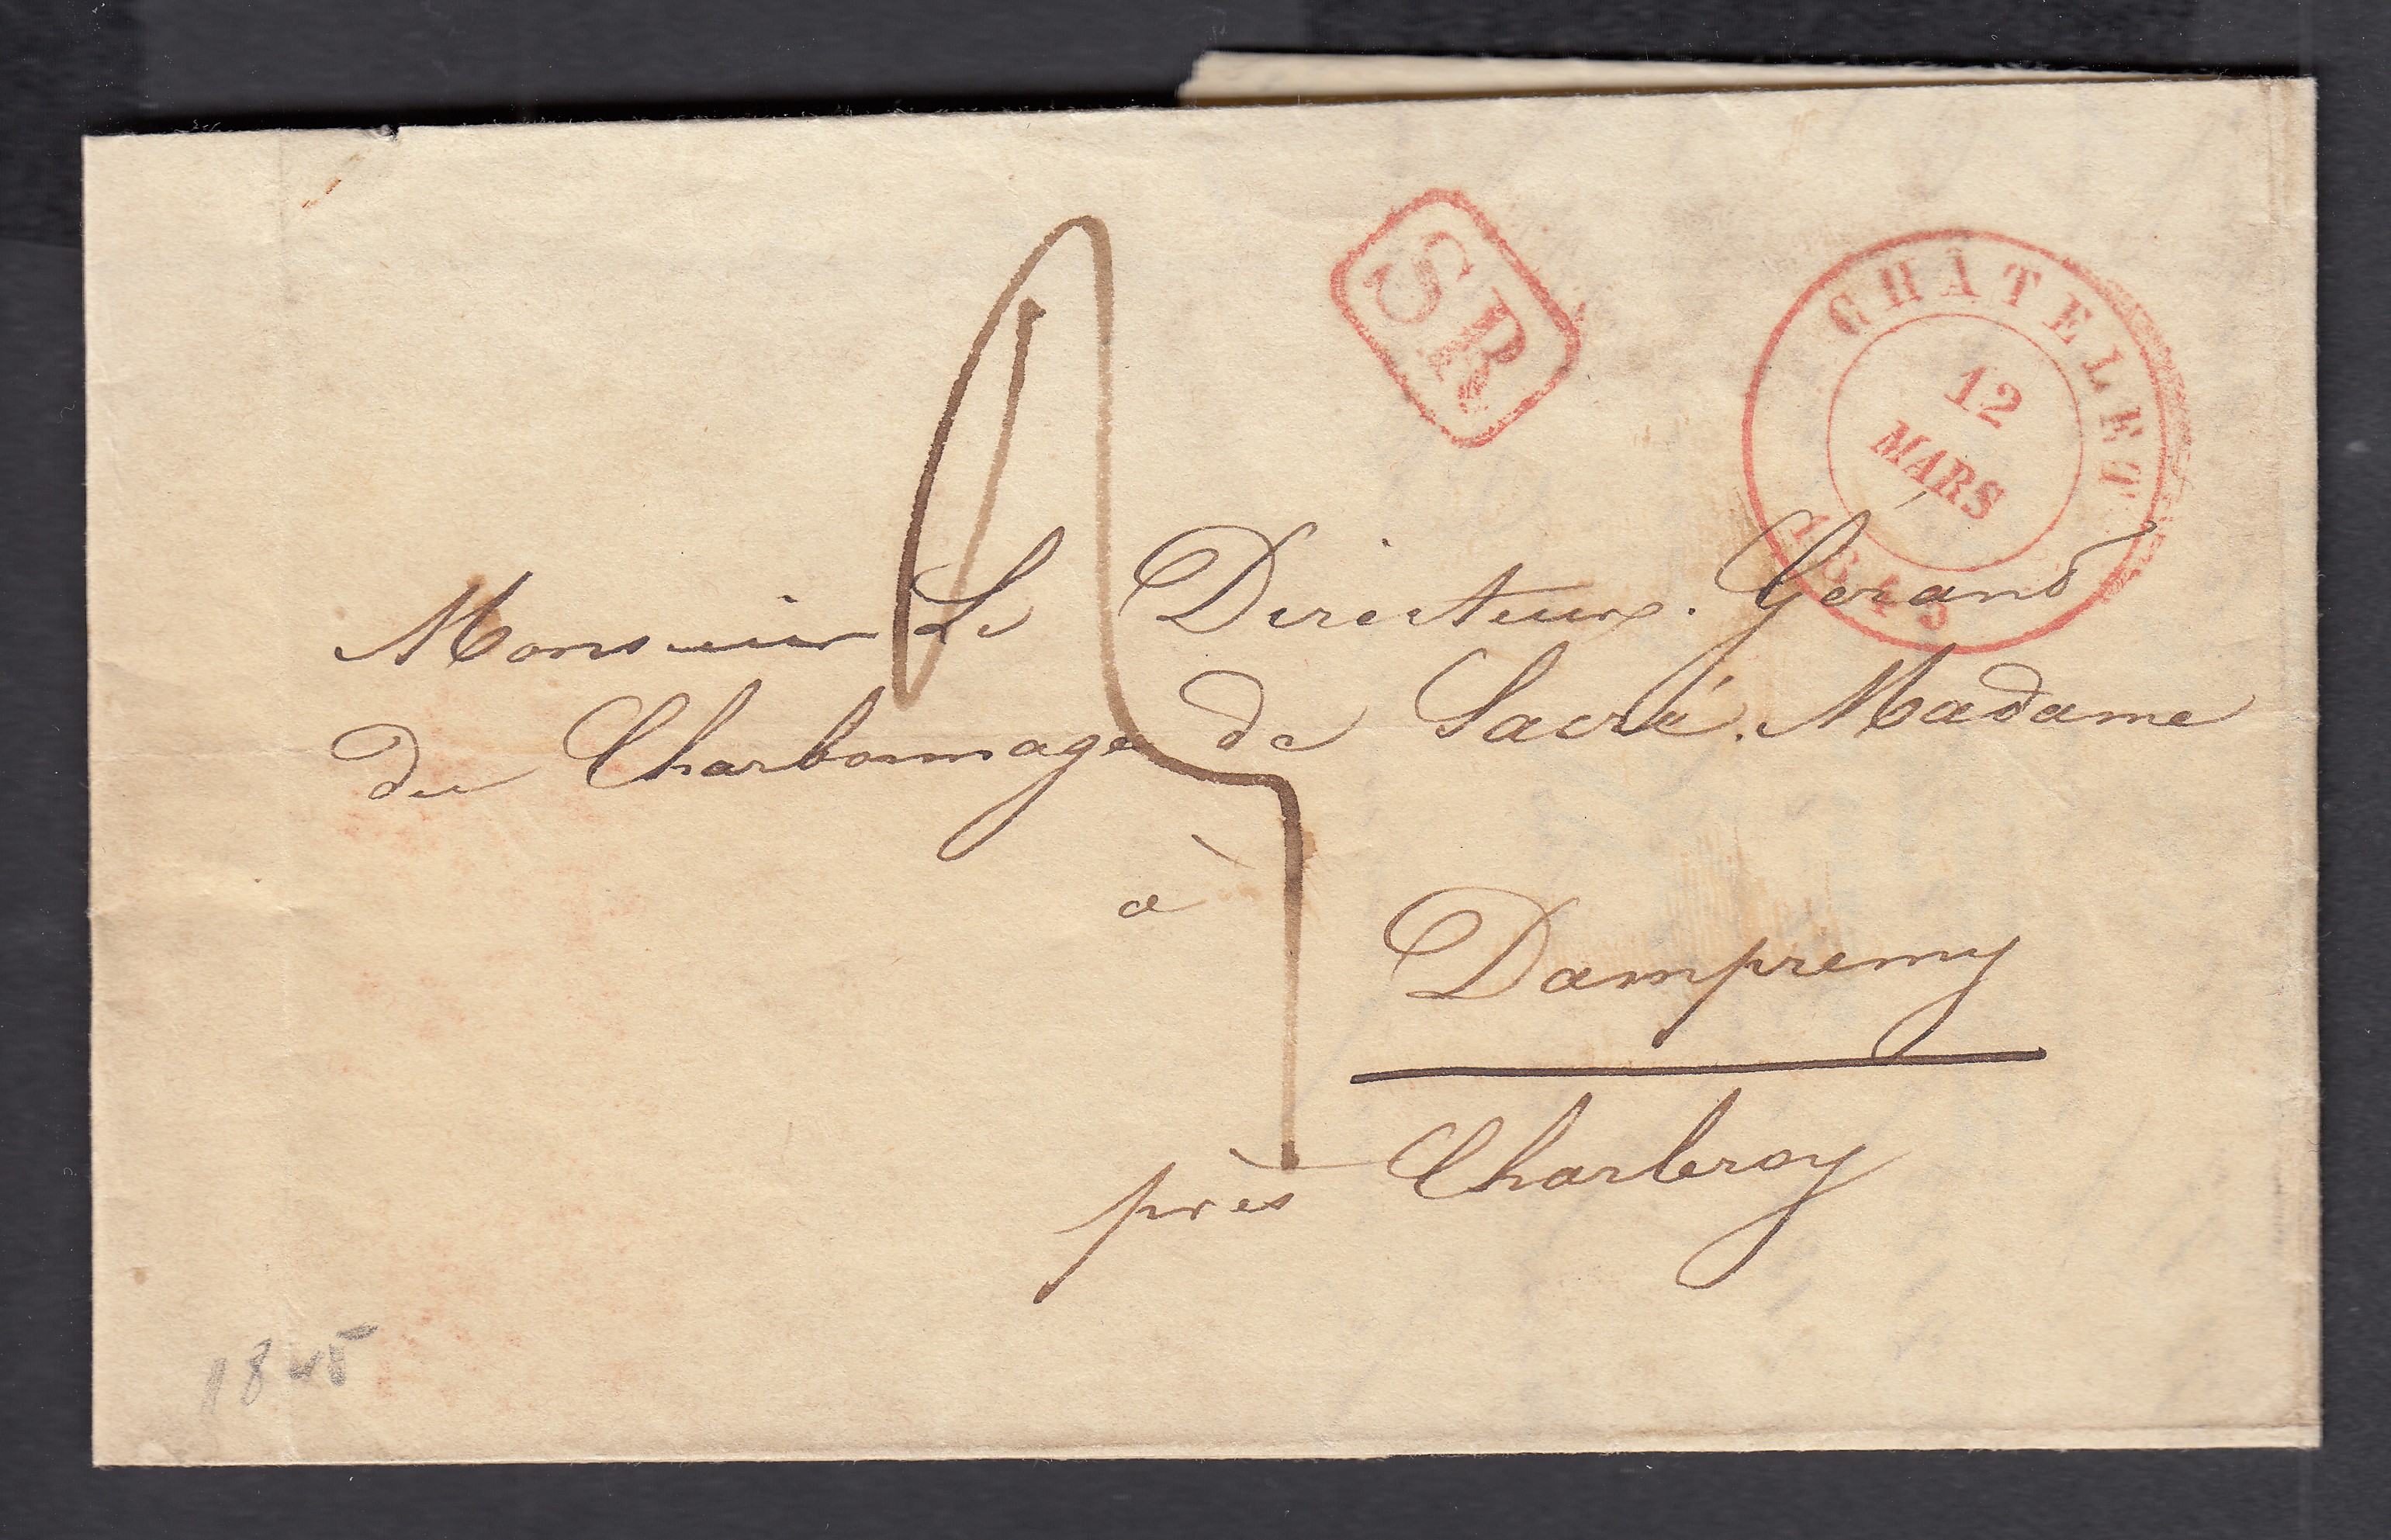 SR
CHÂTELET
12
MARS
1845
Monsieur Le Directeur. Gérand
du Charbonnage de Sacré. Madame
à
Dampremy
près Charleroy
1845